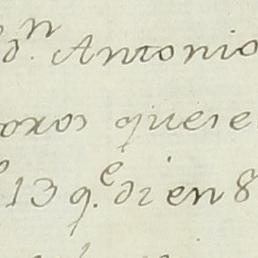 dⁿ. Antonio
oxos quere
13 q.ᵉ di en 8